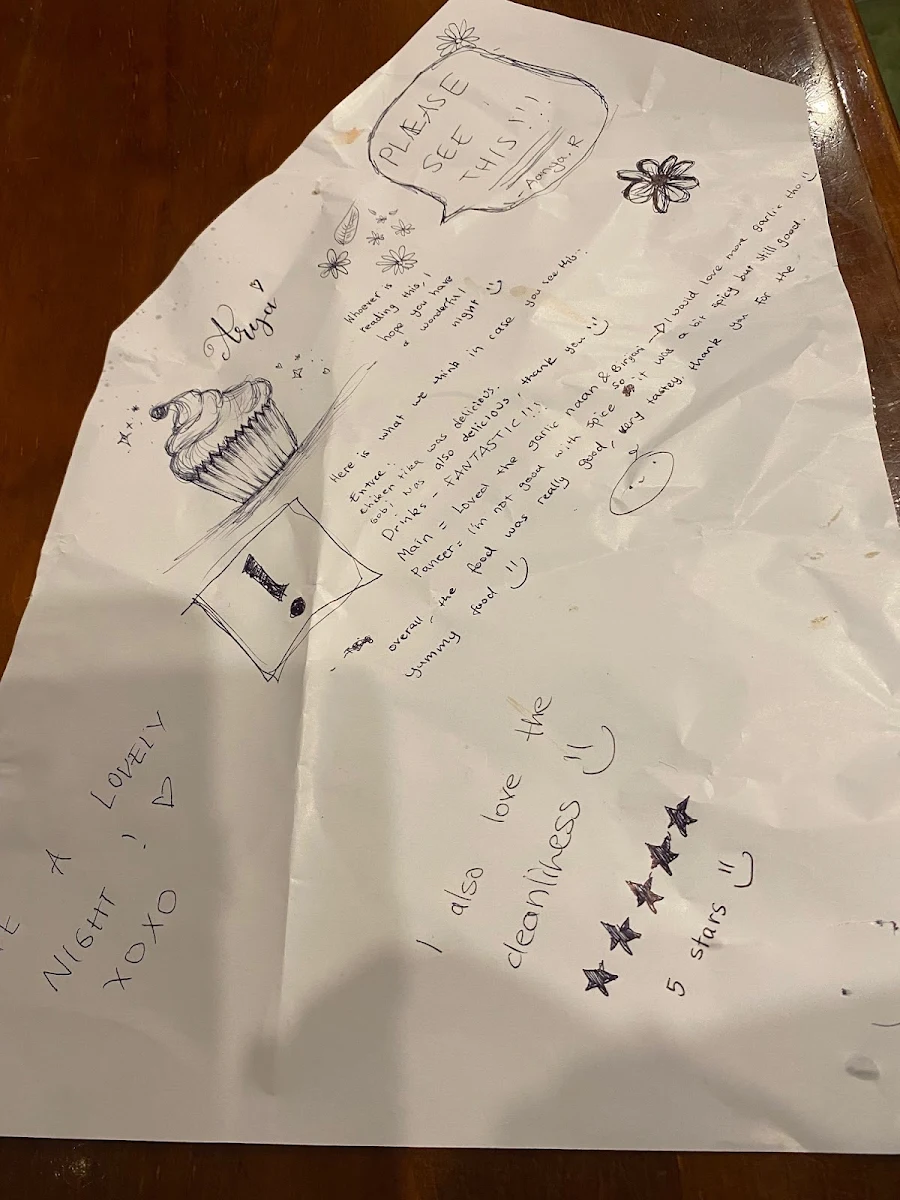 PLEASE
SEE
THIS!!!
- Aanya.R
Whoever is
reading this, I
hope you have
a wonderful
night :)
Arya
Here is what we think in case you see this:
Entree:
Chicken tika was delicious.
Gobi was also delicious, thank you :)
Drinks - FANTASTIC!!!
Main = Loved the garlic naan & Biryani → I would love more garlic tho :)
Paneer = I'm not good with spice so it was a bit spicy but still good.
overall, the food was really good, very tasty, thank you for the
yummy food :)
!
I also love the
cleanliness :)
★★★★★
5 stars :)
A LOVELY
NIGHT! ♡
XOXO